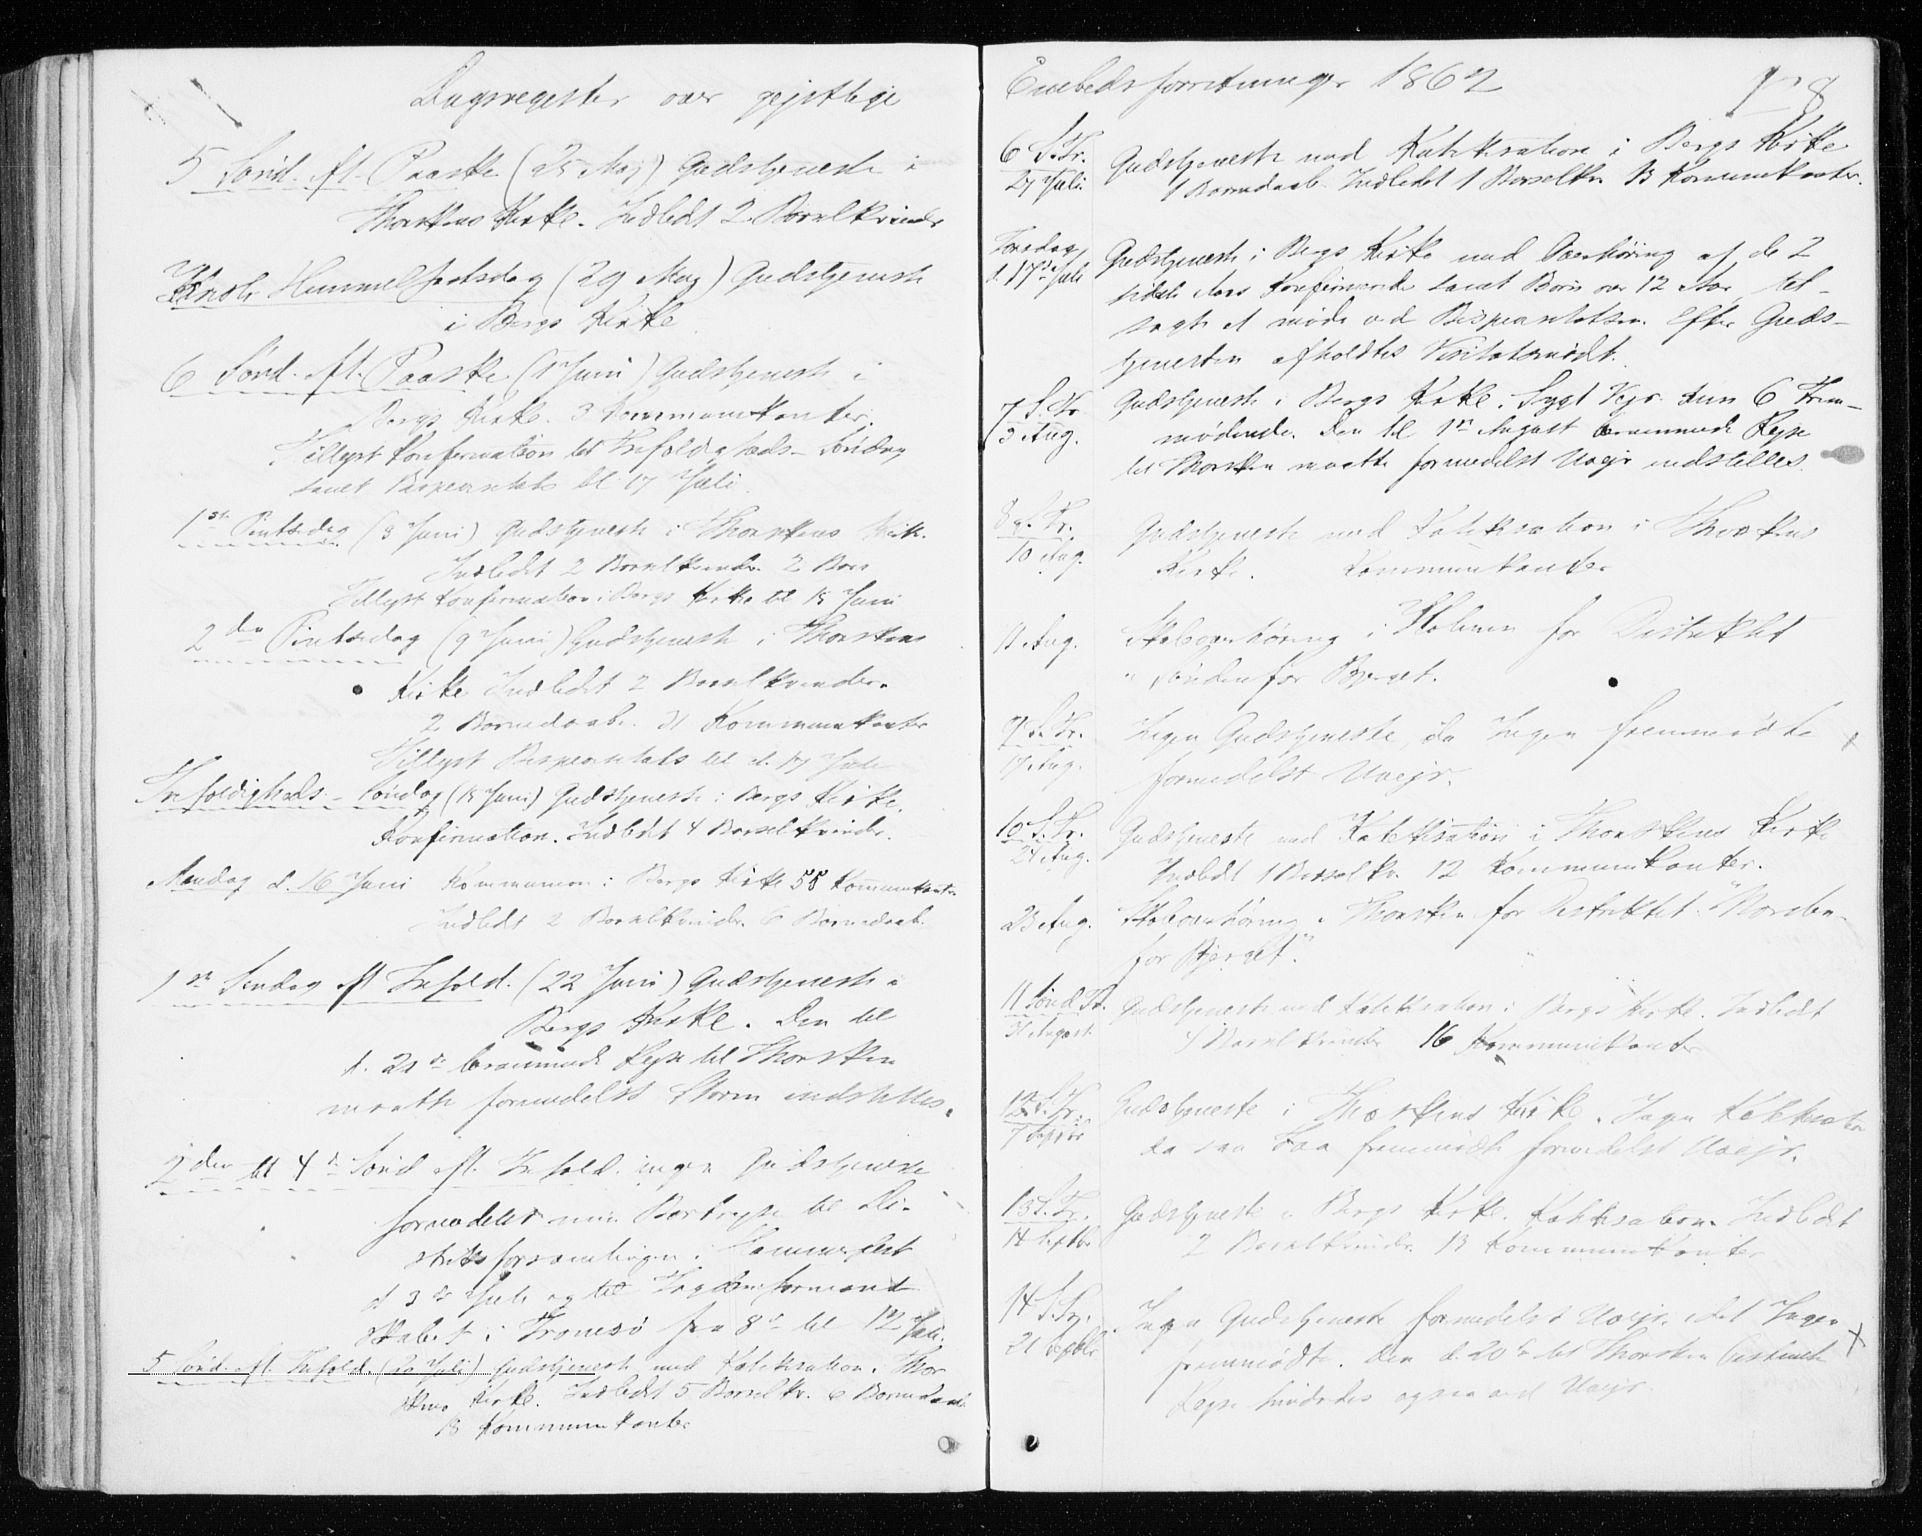 Dagsregister over gejstlige
5 Sønd. eft. Paaske (25 Maj) Gudstjeneste i
Thorskens Kirke. Indledt 2 Barselkvinder
Kristi Himmelfartsdag (29 Maj) Gudstjeneste
i Bergs Kirke
6 Sønd. eft. Paaske (1 Juni) Gudstjeneste i
Bergs Kirke. 3 Kommunikanter.
Tillyst Konfirmation til Trefoldigheds-Søndag
samt Bispevisitats til 17 Juli
1ste Pintsedag (8 Juni) Gudstjeneste i Thorskens Kirk.
Indledt 2 Barselkvinder. 2 Børn
Tillyst Konfirmation i Bergs Kirke til 15 Juni
2den Pintsedag (9 Juni) Gudstjeneste i Thorskens
Kirke Indledt 2 Barselkvinder.
2 Barnedaab. 31 Kommunikanter
Tillyst Bispevisitats til d. 17 Juli
Trefoldigheds-Søndag (15 Juni) Gudstjeneste i Bergs Kirke.
Konfirmation. Indledt 4 Barselkvinder.
Mandag d. 16 Juni Kommunion i Bergs Kirke 55 Kommunikanter
Indledt 2 Barselkvinder. 6 Barnedaab.
1ste Søndag eft Trefold. (22 Juni) Gudstjeneste i
Bergs Kirke. Den til
d. 21de berammede Rejse til Thorsken
maatte formedelst Storm indstilles.
2den til 4de Sønd eft. Trefold. ingen Gudstjeneste
formedelst min Bortrejse til Di-
striktsforsamlingen i Hammerfest
d 3de Juli og til
i Tromsø fra 8de til 12 Juli.
5 Sønd. eft. Trefold. (20 Juli) Gudstjeneste med Katekisation i Thor
skens Kirke. Indledt 5 Barselkv. 6 Barnedaab
18 Kommunikanter
Embedsforretninger 1862
8
6 S. Tr.
27 Juli.
Gudstjeneste med Katekisation i Bergs Kirke
1 Barnedaab. Indledt 1 Barselkv. 13 Kommunikanter.
Torsdag
d. 17de Juli
Gudstjeneste i Bergs Kirke med Overhøring af de 2
sidste Aars Konfirmerede samt Børn over 12 Aar, til-
sagte at møde ved Bispevisitatsen. Efter Guds-
tjenesten afholdtes Visitatsmødet.
7 S. Tr
3 Aug.
Gudstjeneste i Bergs Kirke. Sygt Vejr. Kun 6 Frem-
mødende. Den til 1ste August berammede Rejse
til Thorsken maatte formedelst Uvejr indstilles.
8 S. Tr.
10 Aug.
Gudstjeneste med Katekisation i Thorskens
Kirke. Kommunikanter
11 Aug.
Skoleoverhøring i Holmen for Distriktet
"søndenfor Bjerget.
9 S. Tr.
17 Aug.
Ingen Gudstjeneste, da Ingen fremmødte
formedelst Uvejr.
10 S. Tr.
24 Aug.
Gudstjeneste med Katekisation i Thorskens Kirke
Indledt 1 Barselkv. 12 Kommunikanter.
25 Aug.
Skoleoverhøring i Thorsken for Distriktet "Norden-
for Bjerget".
11 Sønd Tr.
31 August
Gudstjeneste med Katekisation i Bergs Kirke. Indledt
4 Barselkvinder 16 Kommunikanter
12 S. Tr.
7 Septbr
Gudstjeneste i Thorskens Kirke. Ingen Katekisation
da saa Faa fremmødte formedelst Uvejr.
13 S. Tr.
14 Septbr
Gudstjeneste i Bergs Kirke. Katekisation. Indledt
2 Barselkvinder. 13 Kommunikanter
14 S. Tr.
21 Septbr
Ingen Gudstjeneste formedelst Uvejr, idet Ingen
fremmødte. Den d. 20de til Thorsken bestemte
Rejse hindredes ogsaa ved Uvejr